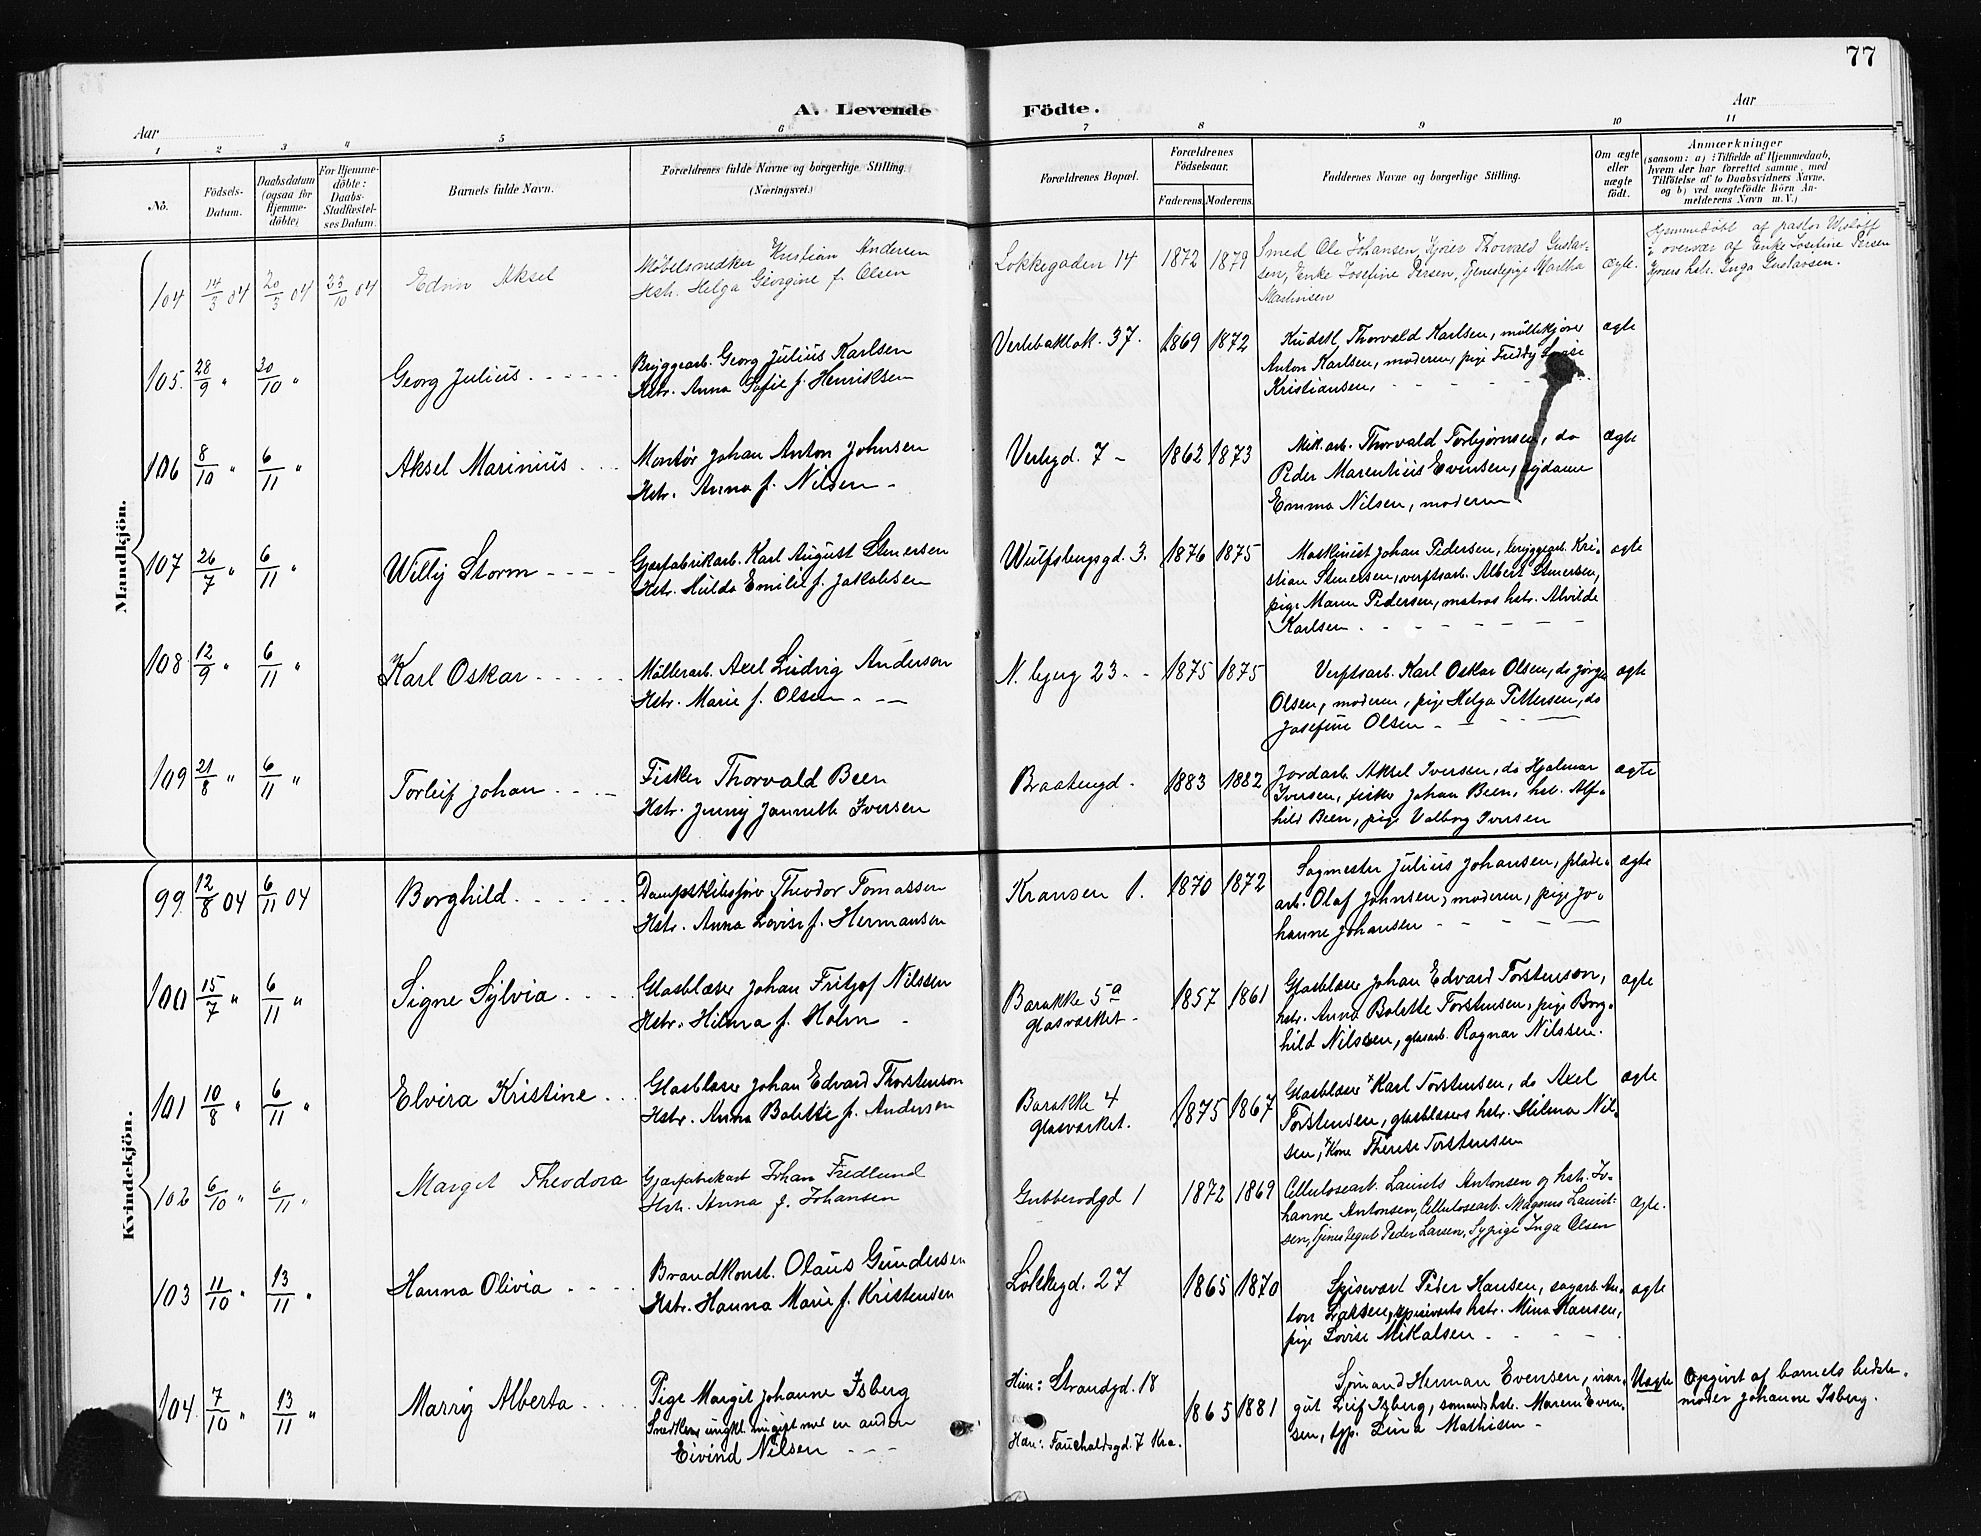 77
A. Levende Födte.
Aar
Aar
1 2 3 4 5 6 7 8 9 10 11
No.
Födsels-Datum.
Daabsdatum (ogsaa for Hjemmedöbte)
For Hjemmedöbte: Daabs-Stadfæstelses Datum.
Barnets fulde Navn.
Forældrenes fulde Navne og borgerlige Stilling. (Næringsvei.)
Forældrenes Bopæl.
Forældrenes Födselsaar.
Faderens. Moderens.
Faddernes Navne og borgerlige Stilling.
Om ægte eller uægte födt.
Anmærkninger
(saasom: a) : Tilfælde af Hjemmedaab,
hvem der har forrettet samme, med
Tilföielse af to Daabsvidners Navne,
og b) ved uegtefödte Börn An-
melderens Navn m. V.)
Mandkjön.
104 14/3 04 20/3 04 23/10 04 Edvin Aksel
Møbelsnedker Kristian Andersen
Hstr. Helga Georgine f. Olsen
Løkkegaden 14 1872 1879
Smed Ole Johansen, Kjører Thorvald Gustav-
sen, Enke Josefine Persen, Tjenestepige Martha
Martinsen
ægte.
Hjemmedøbt af pastor Wisløff
i overvær af Enke Josefine Persen
Kjørers hstr. Inga Gustavsen.
105. 28/9 " 30/10 " Georg Julius
Bryggearb. Georg Julius Karlsen
Hstr. Anna Sofie f. Henriksen
Verlebakløk. 37. 1869 1872
Kudsk. Thorvald Karlsen, møllekjører
Anton Karlsen, moderen, pige Friddy Lovise
Kristiansen,
ægte
106 8/10 " 6/11 " Aksel Marinius
Montør Johan Anton Johnsen
Hstr. Anna f. Nilsen
Verlegd. 7 1862 1873
Mek. arb. Thorvald Torbjørnsen, do
Peder Marentius Evensen, sydame
Emma Nilsen, moderen
ægte
107 26/7 " 6/11 " Willy Storm
Gjærfabrikarb. Karl August Stenersen
Hstr. Hulda Emilie f. Jakobsen
Wulfsbergsgd. 3. 1876 1875
Maskinist Johan Pedersen, bryggearb. Kri-
stian Stenersen, verftsarb. Albert Stenersen,
pige Maren Pedersen, matros hstr. Alvilde
Karlsen
ægte
108 12/9 " 6/11 " Karl Oskar
Møllerarb. Axel Ludvig Anderson
Hstr. Marie f. Olsen
N. bjerg 23 1875 1875
Verftsarb. Karl Oskar Olsen, do Jørgen
Olsen, moderen, pige Helga Pettersen, do
Josefine Olsen
ægte
109 21/8 " 6/11 " Torleif Johan
Fisker Thorvald Been
Hstr. Jenny Jannette Iversen
Braatengd. 1883 1882
Jordarb. Aksel Iversen, do Hjalmar
Iversen, fisker Johan Been, hst. Alf-
hild Been, pige Valborg Iversen
ægte
Kvindekjön.
99. 12/8 04 6/11 04 Borghild
Dampskibsfyrb. Theodor Tomassen
Hstr. Anna Lovise f. Hermansen
Kransen 1. 1870 1872
Sagmester Julius Johansen, plade-
arb. Olaf Johnsen, moderen, pige Jo-
hanne Johansen
ægte
100 15/7 " 6/11 " Signe Sylvia
Glasblæser Johan Fritjof Nilssen
Hstr. Hilma f. Holm
Barakke 5a
glasværket 1857 1861
Glasblæser Johan Edvard Torstenson,
hstr. Anna Bolette Torstensen, pige Borg-
hild Nilssen, glasarb. Ragnar Nilssen.
ægte
101 10/8 " 6/11 " Elvira Kristine
Glasblæser Johan Edvard Thorstenson
Hstr. Anna Bolette f. Andersen
Barakke 4
glasværket. 1875 1867
Glasblæser Karl Torstensen, do Axel
Torstensen, glasblæsers hstr. Hilma Nil-
sen, Kone Therese Torstensen
ægte
102 6/10 " 6/11 " Margit Theodora
Gjærfabrikarb. Johan Fredlund
Hstr. Anna f. Johansen
Gubberødgd 1 1872 1869
Cellulosearb. Laurits Antonsen og hstr. Jo-
hanne Antonsen, Cellulosearb. Magnus Laurit-
sen, Tjenestegut Peder Larsen, Sypige Inga Olsen
ægte.
103 11/10 " 13/11 " Hanna Olivia
Brandkonst. Olaus Gundersen
Hstr. Hanna Marie f. Kristensen
Løkkegd. 27 1865 1870
Spisevært Peder Hansen, sagarb. An-
ton Larsen, spiseværts hstr. Mina Hansen,
pige Lovise Mikalsen
ægte
104 7/10 " 13/11 " Marry Alberta
Pige Margit Johanne Isberg
Snedker, ungkl. nu gift med en anden
Eivind Nilsen
Hun: Strandgd. 18
Han: Fauchaldsgd. 7 Kra. 1865 1881
Sømand Herman Evensen, visergut Leif Isberg, sømands hstr. Maren Even-
sen, tjp. Lina Mathisen
Uægte
Opgivet af barnets bedste-
moder Johanne Isberg.